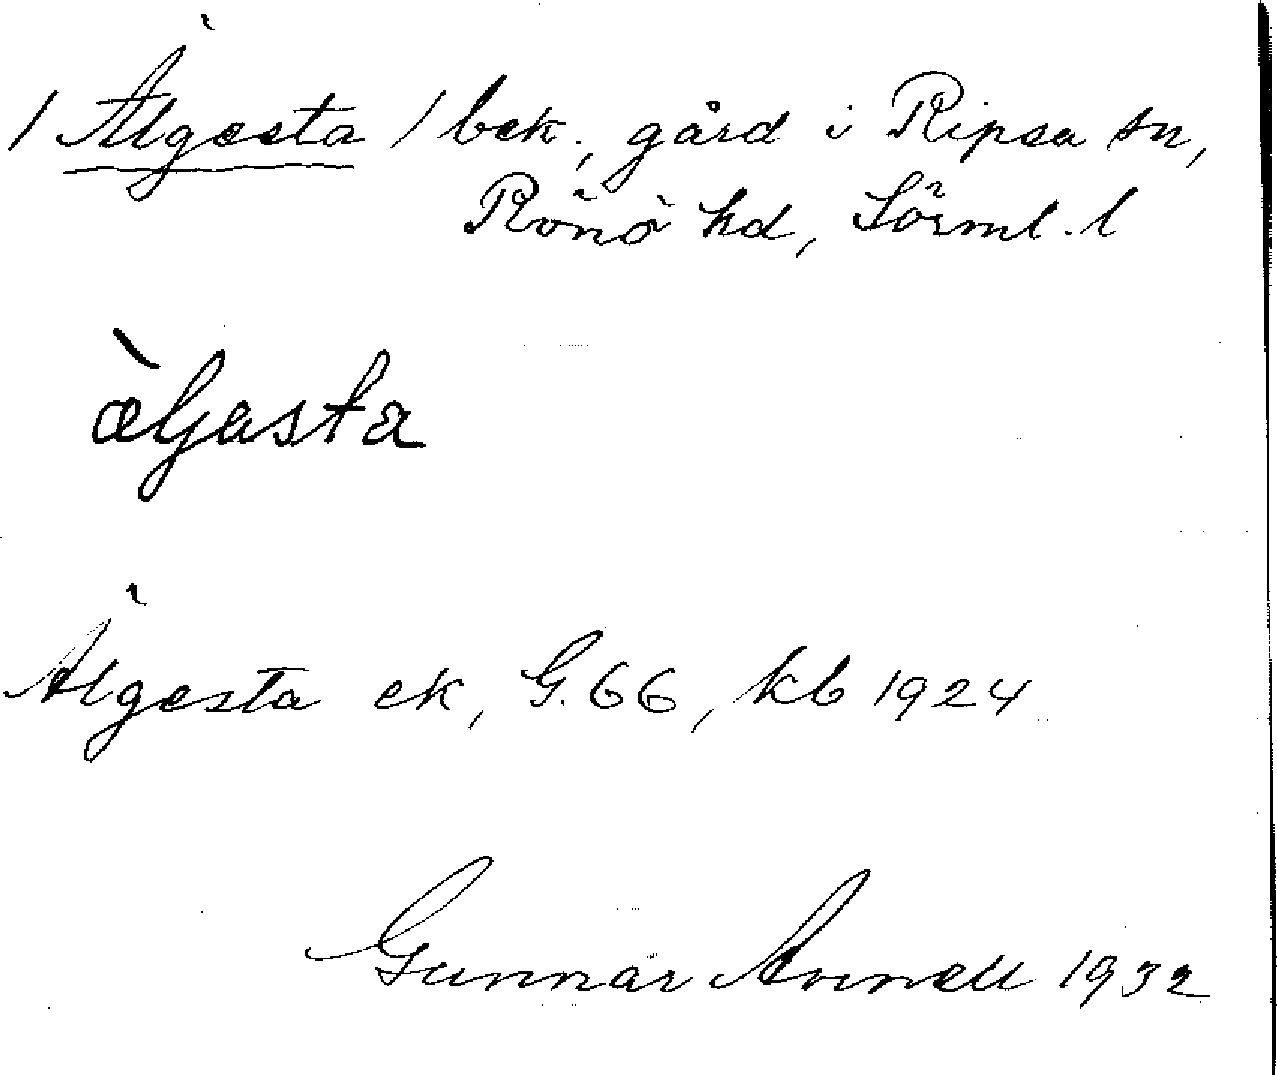 / Älgesta / bek., gård i Ripsa sn,
Rönö hd, Sörml. l
æ̀ljasta
Älgesta ek, G. 66, kb 1924
Gunnar Annell 1932